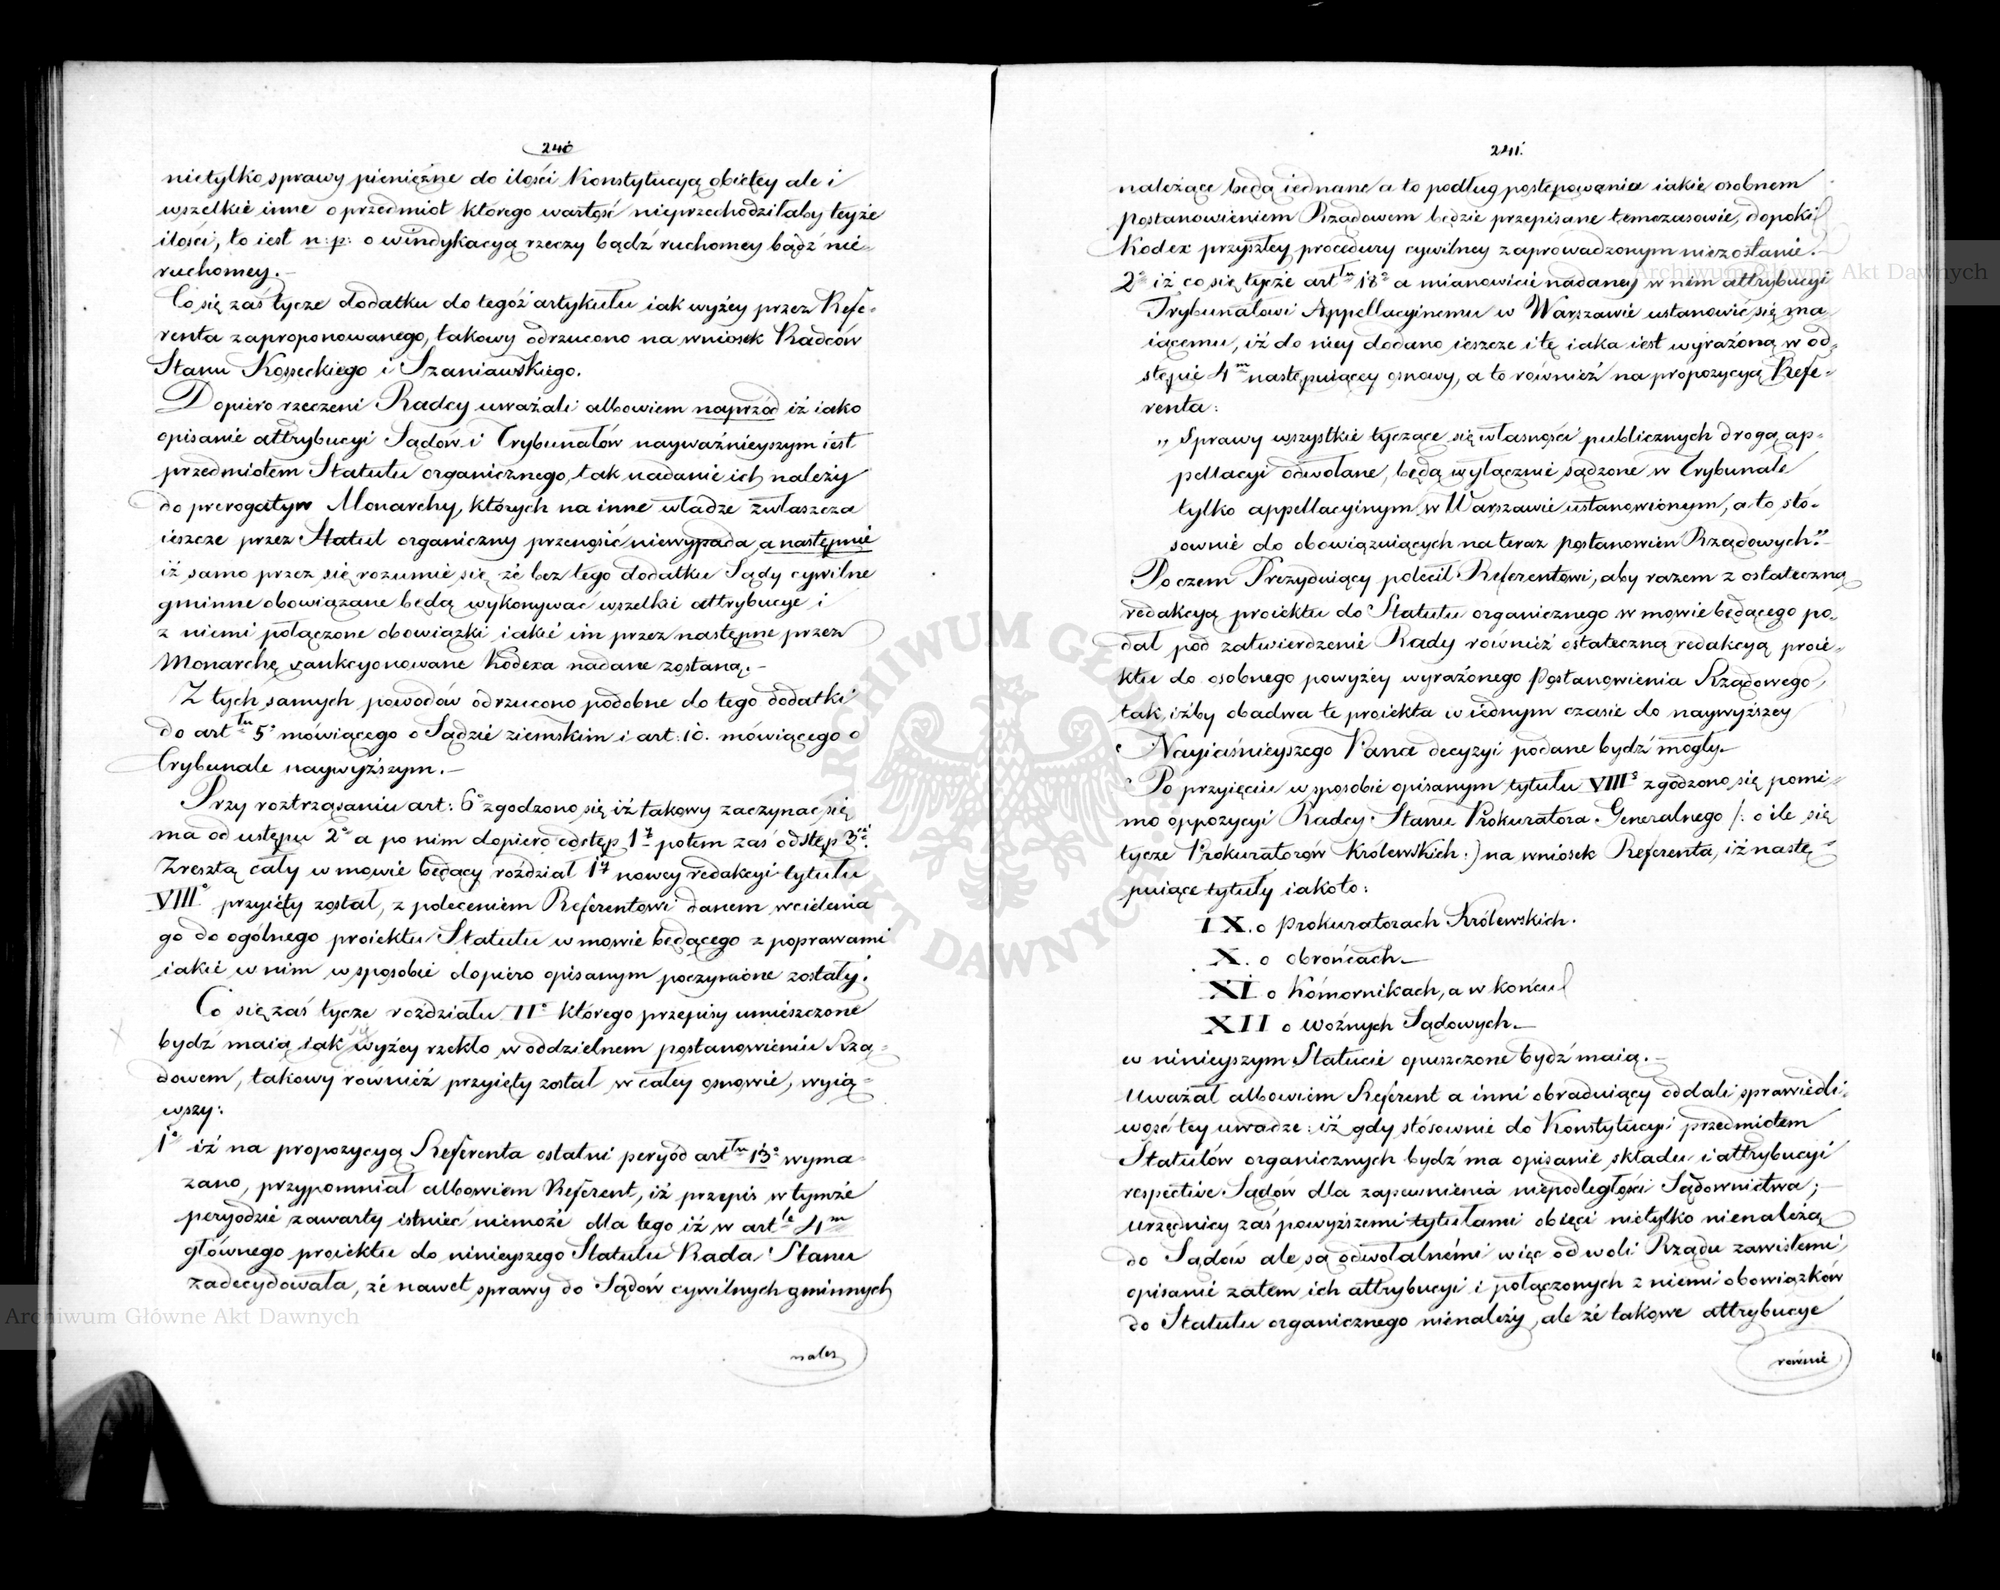 240
nietylko sprawy pieniężne do ilości Konstytucyą obiętey ale i
wszelkie inne o przedmiot którego wartość nieprzechodziłaby teyże
ilości, to iest n: p: o windykacyą rzeczy bądź ruchomey bądź nie-
ruchomey.—
Co się zaś tycze dodatku do tegoż artykułu iak wyżey przez Refe-
renta zaproponowanego, takowy odrzucono na wniosek Radców
Stanu Kosseckiego i Szaniawskiego.
Dopiero rzeczeni Radcy uważali albowiem naprzód iż iako
opisanie attrybucyi Sądów i Trybunałów nayważnieyszym iest
przedmiotem Statutu organicznego, tak nadanie ich należy
do prerogatyw Monarchy, których na inne władze zwłaszcza
ieszcze przez Statut organiczny przenosić niewypada, a następnie
iż samo przez się rozumie się że bez tego dodatku Sądy cywilne
gminne obowiązane będą wykonywać wszelkie attrybucye i
z niemi połączone obowiązki iakie im przez następne przez
Monarchę sankcyonowane Kodexa nadane zostaną.—
Z tych samych powodów odrzucono podobne do tego dodatki
do art.tu 5° mówiącego o Sądzie ziemskim i art: 10. mówiącego o
Trybunale naywyższym.—
Przy roztrząsaniu art: 6° zgodzono się iż takowy zaczynać się
ma od ustępu 2° a po nim dopiero odstęp 1y potem zaś odstęp 3ci.
Zresztą cały w mowie będący rozdział 1y nowey redakcyi tytułu
VIII° przyięty został, z poleceniem Referentowi danem wcielenia
go do ogólnego proiektu Statutu w mowie będącego z poprawami
iakie w nim w sposobie dopiero opisanym poczynione zostały.
Co się zaś tycze rozdziału II° którego przepisy umieszczone
bydź maią iak wyżey rzekło w oddzielnem postanowieniu Rzą-
dowem, takowy również przyięty został w całey osnowie, wyią-
wszy:
1° iż na propozycyą Referenta ostatni peryod art.tu 13° wyma-
zano, przypomniał albowiem Referent, iż przepis w tymże
peryodzie zawarty istnieć niemoże dla tego iż w art.le 4m
głównego proiektu do ninieyszego Statutu Rada Stanu
zadecydowała, że nawet sprawy do Sądów cywilnych gminnych
nales
241.
należące będą iednane a to podług postępowania iakie osobnem
postanowieniem Rządowem będzie przepisane temczasowie, dopoki
Kodex przyszłey procedury cywilney zaprowadzonym niezostanie.—
2° iż co się tycze art.tu 18° a mianowicie nadaney w nem attrybucyi
Trybunałowi Appellacyinemu w Warszawie ustanowić się ma-
iącemu, iż do niey dodano ieszcze i tę iaka iest wyrażoną w od-
stępie 4m następuiącey osnowy, a to również na propozycyą Refe-
renta:
„ Sprawy wszystkie tyczące się własności publicznych drogą ap-
pellacyi odwołane, będą wyłącznie sądzone w Trybunale
tylko appellacyinym w Warszawie ustanowionym, a to sto-
sownie do obowiązuiących na teraz postanowien Rządowych."—
Poczem Prezyduiący polecił Referentowi, aby razem z ostateczną
redakcyą proiektu do Statutu organicznego w mowie będącego po-
dał pod zatwierdzenie Rady również ostateczną redakcyą proie-
ktu do osobnego powyżey wyrażonego Postanowienia Rządowego,
tak, iżby obadwa te proiekta w iednym czasie do naywyższey
Nayiaśnieyszego Pana decyzyi podane bydź mogły.—
Po przyięciu w sposobie opisanym tytułu VIII° zgodzono się pomi-
mo oppozycyi Radcy Stanu Prokuratora Generalnego /: o ile się
tycze Prokuratorów Królewskich :) na wniosek Referenta, iż nastę-
puiące tytuły iakoto:
IX. o Prokuratorach Królewskich.
X. o obrońcach.—
XI o Komornikach, a w końcu
XII o Woźnych Sądowych.—
w ninieyszym Statucie opuszczone bydź maią.—
Uważał albowiem Referent a inni obraduiący oddali sprawiedli-
wość tey uwadze: iż gdy stósownie do Konstytucyi przedmiotem
Statutów organicznych bydź ma opisanie składu i attrybucyi
respective Sądów dla zapewnienia niepodległości Sądownictwa;—
urzędnicy zaś powyższemi tytułami obięci nietylko nienależą
do Sądów ale są odwołalnémi więc od woli Rządu zawisłemi,
opisanie zatem ich attrybucyi i połączonych z niemi obowiązków
do Statutu organicznego nienależy, ale że takowe attrybucye
rownie
Archiwum Główne Akt Dawnych
Archiwum Główne Akt Dawnych
ARCHIWUM GŁÓWNE AKT DAWNYCH